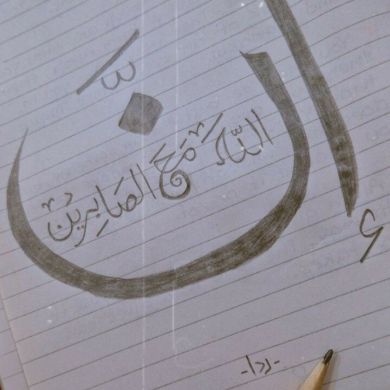 إنَّ
اللّٰه مَعَ الصَابِرين